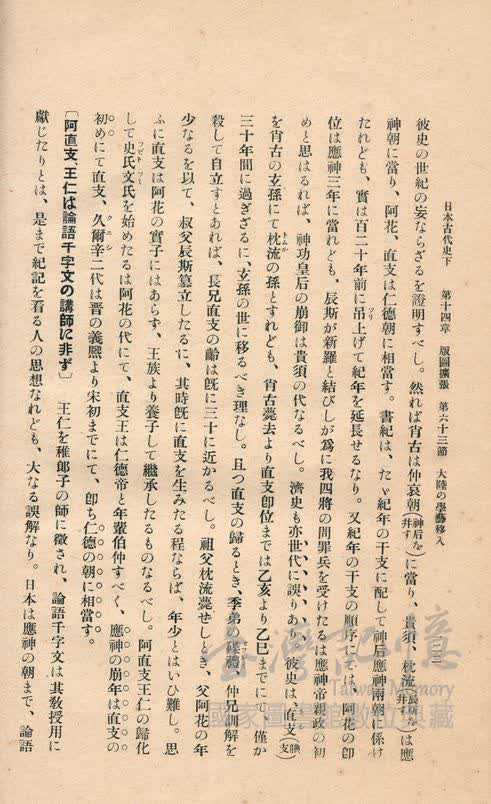 日本古代史下　第十四章　版圖擴張　第六十三節　大陸の學藝移入
彼史の世紀の妄ならざるを證明すべし。然れば肖古は仲哀朝(神后を幷す)に當り、貴須、枕流(辰斯を幷す)は應
神朝に當り、阿花、直支は仁德朝に相當す。書紀は、たゞ紀年の干支に配して神后應神兩朝に係け
たれども、實は百二十年前に吊上げて紀年を延長せるなり。又紀年の干支の順序にては、阿花の卽
位は應神三年に當れども、辰斯が新羅と結びしが爲に我四將の問罪兵を受けたるは應神帝親政の初
めと思はるれば、神功皇后の崩御は貴須の代なるべし。濟史も亦世代に誤りあり、彼史は、直支(腆支)
を肖古の玄孫にて枕流の孫とすれども、肖古薨去より直支卽位までは乙亥より乙巳までにて、僅か
三十年間に過ぎざるに、玄孫の世に移るべき理なし。且つ直支の歸るとき、季弟の碟禮、仲兄訓解を
殺して自立すとあれば、長兄直支の齡は旣に三十に近かるべし。祖父枕流薨ぜしとき、父阿花の年
少なるを以て、叔父辰斯簒立したるに、其時旣に直支を生みたる程ならば、年少とはいひ難し。思
ふに直支は阿花の實子にはあらず、王族より養子して繼承したるものなるべし。阿直支王仁の歸化
して史氏文氏を始めたるは阿花の代にて、直支王は仁德帝と年輩伯仲すべく、應神の崩年は直支の
初めにて直支、久爾辛二代は晋の義熙より宋初までにて、卽ち仁德の朝に相當す。
〔阿直支、王仁は論語千字文の講師に非ず〕　王仁を稚郎子の師に徵され、論語千字文は其敎授用に
獻じたりとは、是まで紀記を看る人の思想なれども、大なる誤解なり。日本は應神の朝まで、論語
臺灣
Taiwan Memory
國家圖書館
典藏